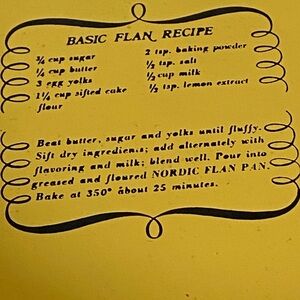 BASIC FLAN RECIPE
¾ cup sugar
¼ cup butter
3 egg yolks
1¼ cup sifted cake
flour
2 tsp. baking powder
½ tsp. salt
½ cup milk
½ tsp. lemon extract
Beat butter, sugar and yolks until fluffy.
Sift dry ingredients; add alternately with
flavoring and milk; blend well. Pour into
greased and floured NORDIC FLAN PAN.
Bake at 350° about 25 minutes.